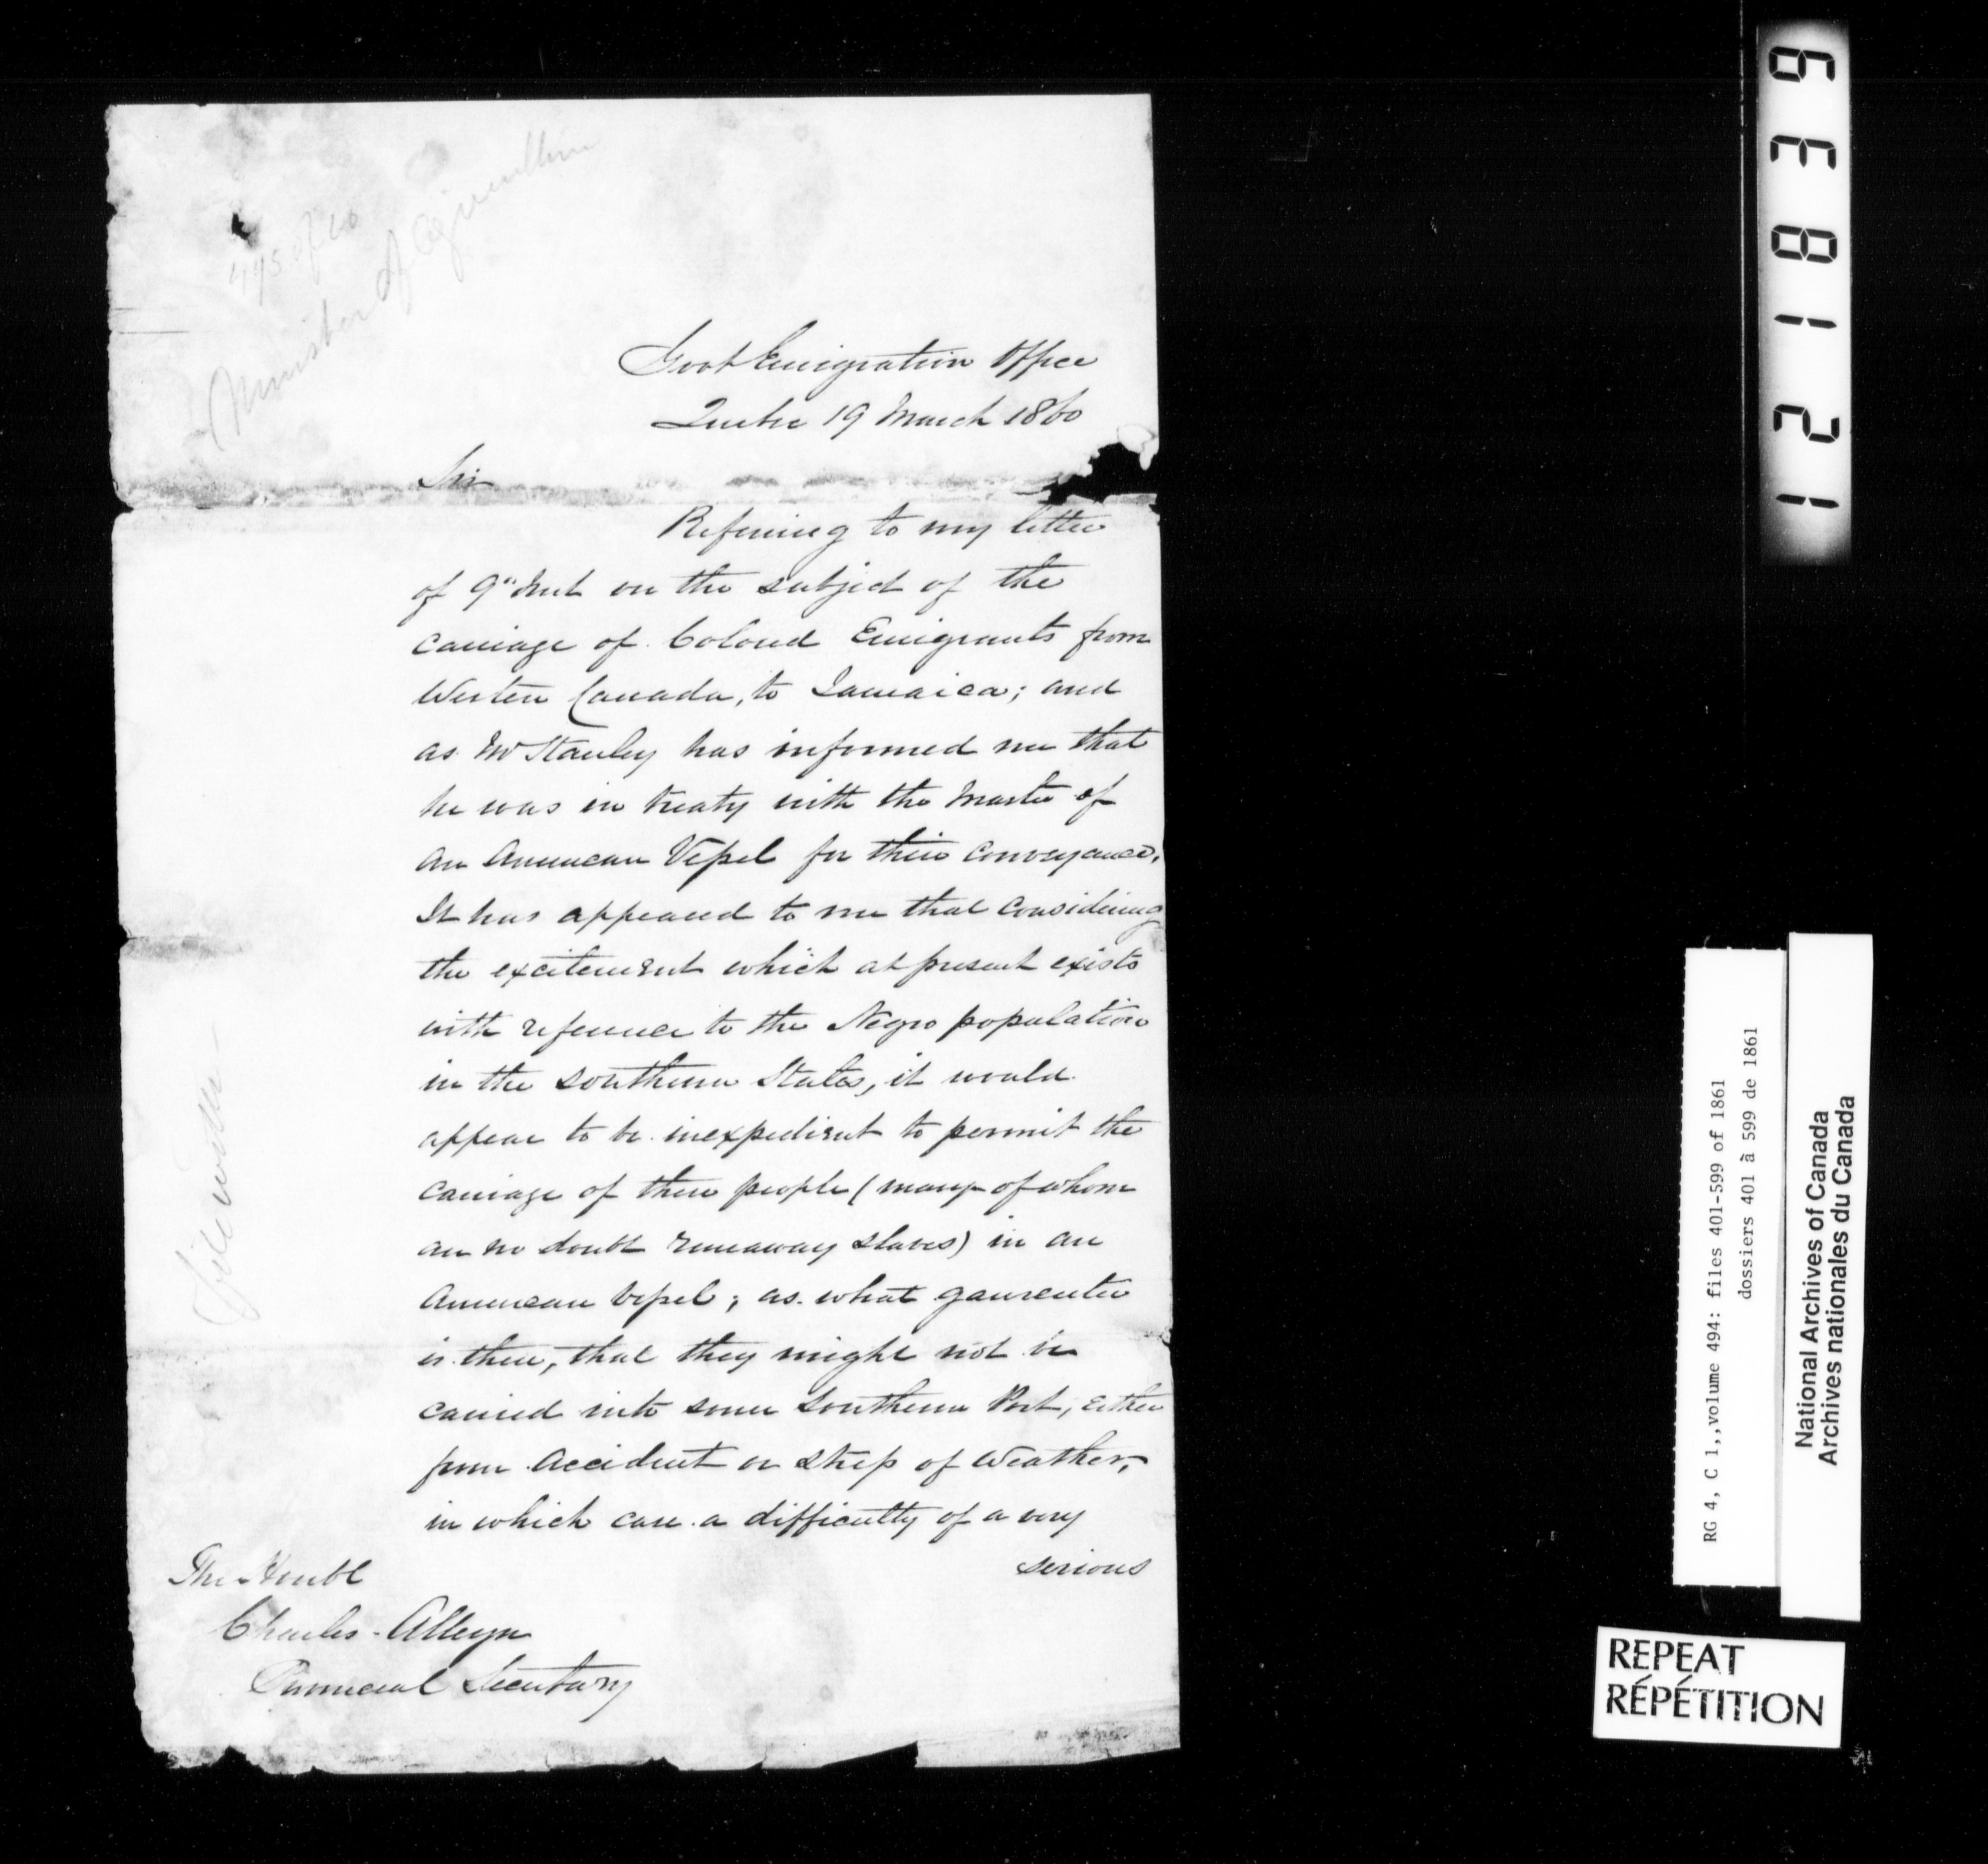 495 of 60
Minister of Agriculture
Govt Emigration Office
Quebec 19 March 1860
Sir
Referring to my letter
of 9" Inst on the subject of the
carriage of Colored Emigrants from
Western Canada, to Jamaica; and
as Mr Stanley has informed me that
he was in treaty with the Master of
an American Vessel for their conveyance.
It has appeared to me that considering
the excitement which at present exists
with reference to the Negro population
in the Southern States, it would
appear to be inexpedient to permit the
carriage of these people (many of whom
are no doubt runaway slaves) in an
American Vessel; as what gaurentee
is there, that they might not be
carried into some Southern Port, either
from accident or stress of weather,
in which case a difficulty of a very
serious
The Honble
Charles Alleyn
Provincial Secretary
121839
RG 4, C 1,,volume 494: files 401-599 of 1861
dossiers 401 à 599 de 1861
National Archives of Canada
Archives nationales du Canada
REPEAT
RÉPÉTITION